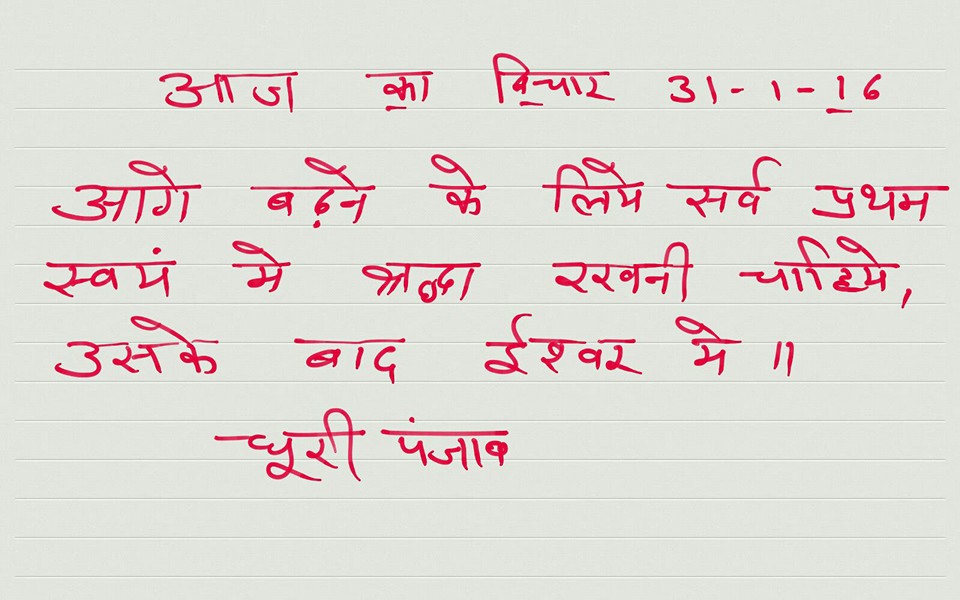 आज का विचार 31-1-16
आगे बढ़ने के लिये सर्व प्रथम
स्वयं मे श्रद्धा रखनी चाहिये,
उसके बाद ईश्वर मे ॥
धूरी पंजाब